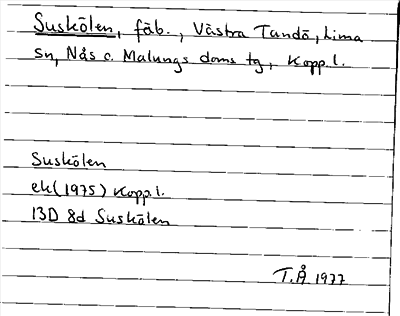 Suskölen, fäb., Västra Tandö, Lima
sn, Nås o. Malungs doms tg, Kopp. l.
Suskölen
ek (1975) Kopp. l.
13D 8d Suskölen
T.Å 1977